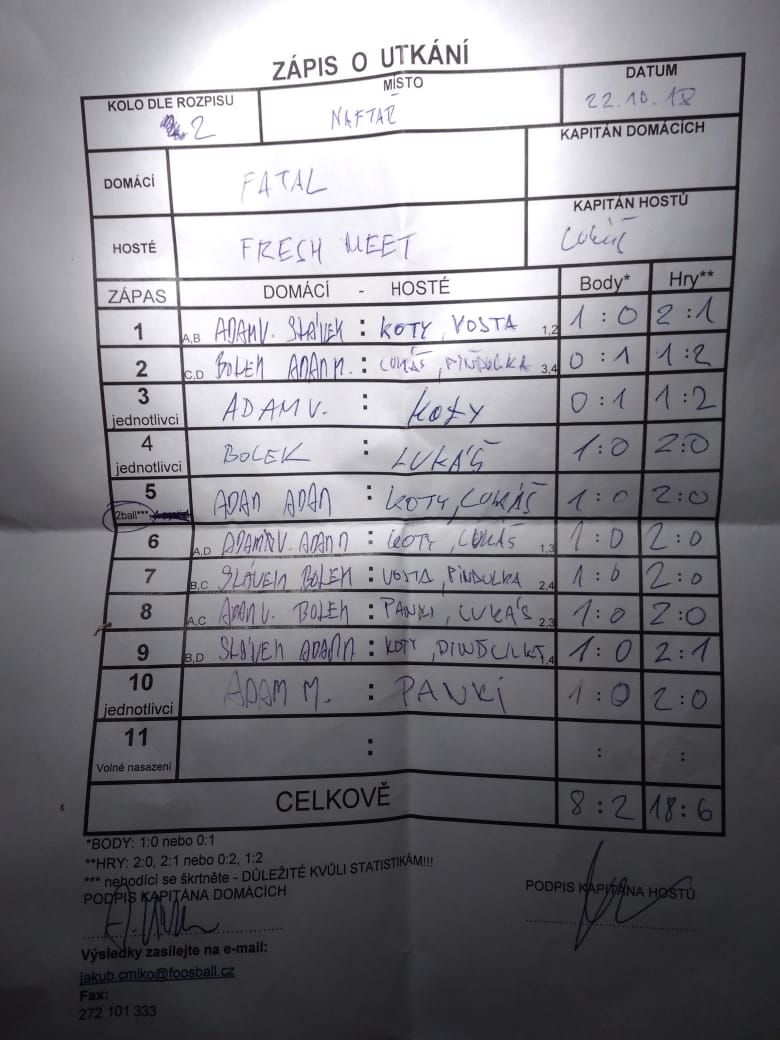 ZÁPIS O UTKÁNÍ
KOLO DLE ROZPISU
2
MÍSTO
NAFTAŘ
DATUM
22.10.18
DOMÁCÍ
FATAL
KAPITÁN DOMÁCÍCH
HOSTÉ
FRESH MEET
KAPITÁN HOSTŮ
LUKÁŠ
ZÁPAS DOMÁCÍ - HOSTÉ Body* Hry**
1 A,B ADAM V. SLÁVEK : KOTY, VOSTA 1,2 1 : 0 2 : 1
2 C,D BOLEK ADAM M. : LUKÁŠ, PINĎULKA 3,4 0 : 1 1 : 2
3 jednotlivci ADAM V. : KOTY 0 : 1 1 : 2
4 jednotlivci BOLEK : LUKÁŠ 1 : 0 2 : 0
5 2ball*** ADAM ADAM : KOTY, LUKÁŠ 1 : 0 2 : 0
6 A,D ADAM V. ADAM M : KOTY, LUKÁŠ 1,3 1 : 0 2 : 0
7 B,C SLÁVEK BOLEK : VOSTA, PINDULKA 2,4 1 : 0 2 : 0
8 A,C ADAM V. BOLEK : PANKI, LUKÁŠ 2,3 1 : 0 2 : 0
9 B,D SLÁVEK ADAM M : KOTY, ,4 1 : 0 2 : 1
10 jednotlivci ADAM M. : PANKÍ 1 : 0 2 : 0
11 Volné nasazení : : :
CELKOVĚ 8 : 2 18 : 6
*BODY: 1:0 nebo 0:1
**HRY: 2:0, 2:1 nebo 0:2, 1:2
*** nehodící se škrtněte - DŮLEŽITÉ KVŮLI STATISTIKÁM!!!
PODPIS KAPITÁNA DOMÁCÍCH
PODPIS KAPITÁNA HOSTŮ
Výsledky zasílejte na e-mail:
jakub.cmiko@foosball.cz
Fax:
272 101 333